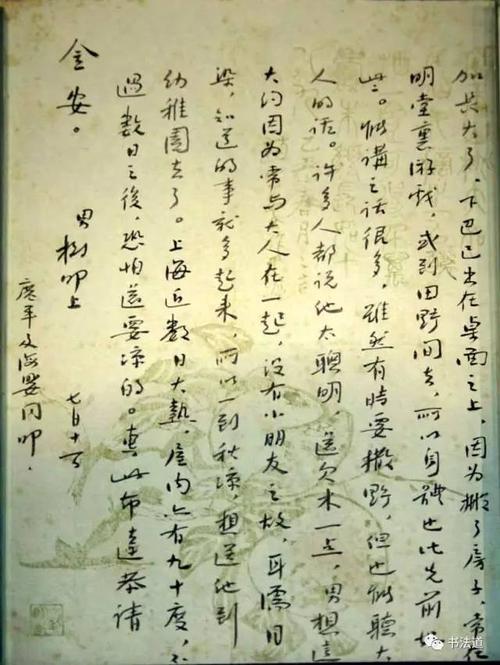 加長大了，下巴已出在桌面之上，因为搬了房子，常在
明堂裏游戏，或到田野间去，所以身體也比先前好
些。能講之话很多，雖然有時要撒野，但也能聽大
人的话。许多人都说他太聪明，還欠木一点，男想這
大约因为常与大人在一起，没有小朋友之故，耳濡目
染，知道的事就多起来，所以一到秋凉，想送他到
幼稚園去了。上海近數日大熱，屋内亦有九十度，不
過數日之後，恐怕還要凉的。專此布達，恭請
金安。
男樹叩上 七月十一日
廣平及海嬰同叩．
书法道